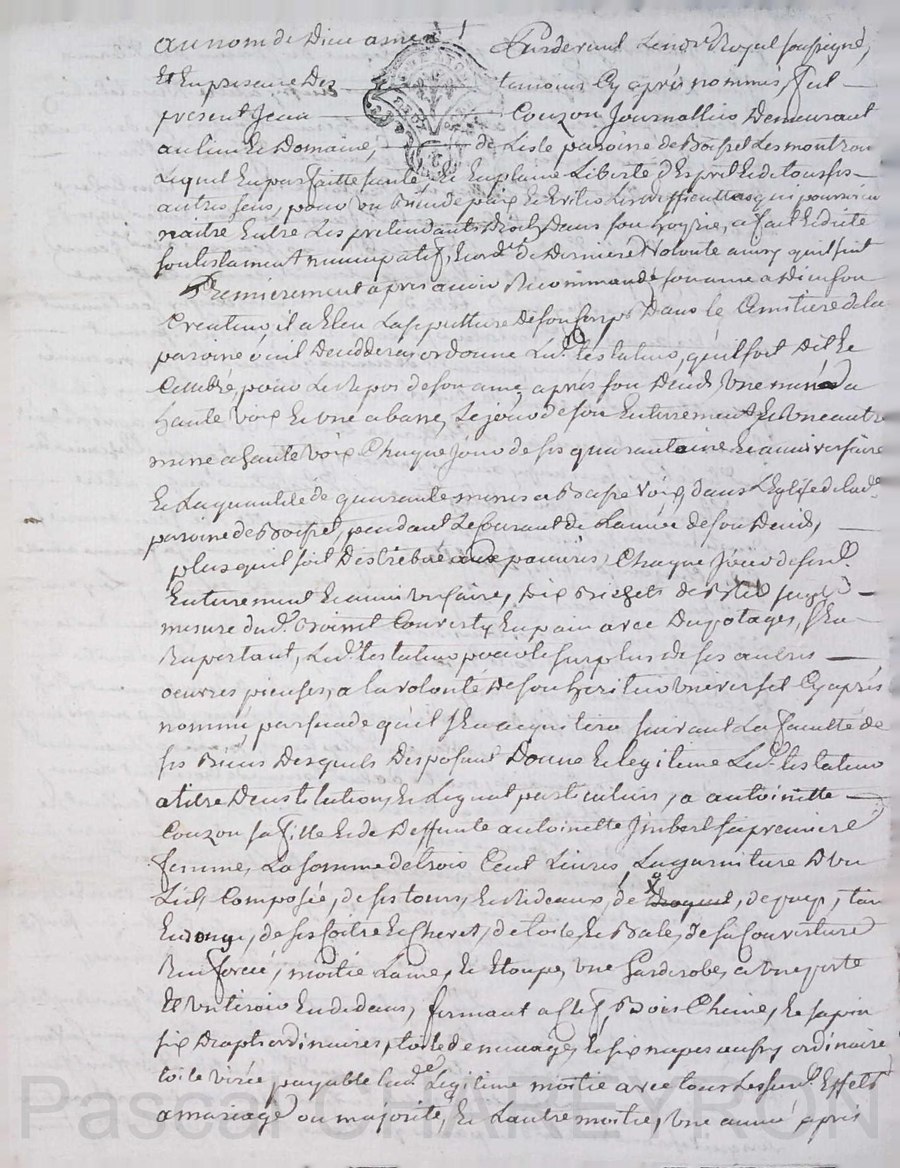 au nom de Dieu amen Pardevant Le no.re Royal soussigné,
Et En presence Des temoins Cy aprés nommés, fut
present Jean Couzon Journallier Demeurant
au lieu Et Domaine, de Lisle paroisse de Boisset Les montrond
Lequel En parfaitte santé, Et En plaine Liberté d'Esprit Et de tous ses
autres sens, pour vu bien de paix Et Eviter Les difficultes qui pourroient
naitre Entre Les pretendants Droits Dans son hoyrie, a fait Et Dicté
son testament nuncupatif, Et ord.ce de Derniere Volonté ainsy qu'il suit
Premierement apres avoir Recommandé son ame a Dieu son
Createur il a Eleu La sepulture de son Corps Dans le Cimitiere de la
paroisse ou il Deceddera, ordonne Led.t testateur, qu'il soit Dit Et
Celebré, pour Le Repos de son ame, aprés son Deceds, Une messe a
haute Voix Et Une a basse, Le jour de son Enterrement Et Une autre
messe a haute Voix Chaque Jour de ses quarantaine Et anniversaire
Et La quantité de quarante messes a Basse Voix, dans L'Eglise de lad.e
paroisse de Boisset, pendant Le Courant de L'année de son Deceds,
plus qu'il soit Distribué aux pauvres, Chaque Jour de sesd.
Enterrement Et anniversaire, Dix Bichets de Bled seigle
mesure dud. Boisset Convertis En pain avec Du potage, s'En
Raportant, Led.t testateur pour le surplus de ses autres
oeuvres pieuses, a la volonté De son heritier Universel Cy aprés
nommé, persuadé qu'il s'En acquittera suivant La faculté de
ses Biens Desquels Disposant Donne Et legitime Led.t testateur
a titre D'institution, Et Legat particulier, a antoinette
Couzon sa fille Et de Deffunte antoinette Jmbert sa premiere
femme, La somme de trois Cent Livres, La garniture D'un
Lict Composée, de ses tours, Et Rideaux, de de
de ses Coitre Et Chevet, de toile, Et Bale, de sa Couverture
moitié Laine, Et Etoupe, Une Garderobe, a Une porte
Et Un tiroir En dedans, fermant a Clef, Bois Chesne, Et sapin
six Draps ordinaires, toile de menage, Et six napes aussy ordinaire
toile payable lad.e Legitime moitié avec tous Les sus.d Effets
a mariage ou majorité, Et L'autre moitié, Une année aprés
Pascal CHAREYRON